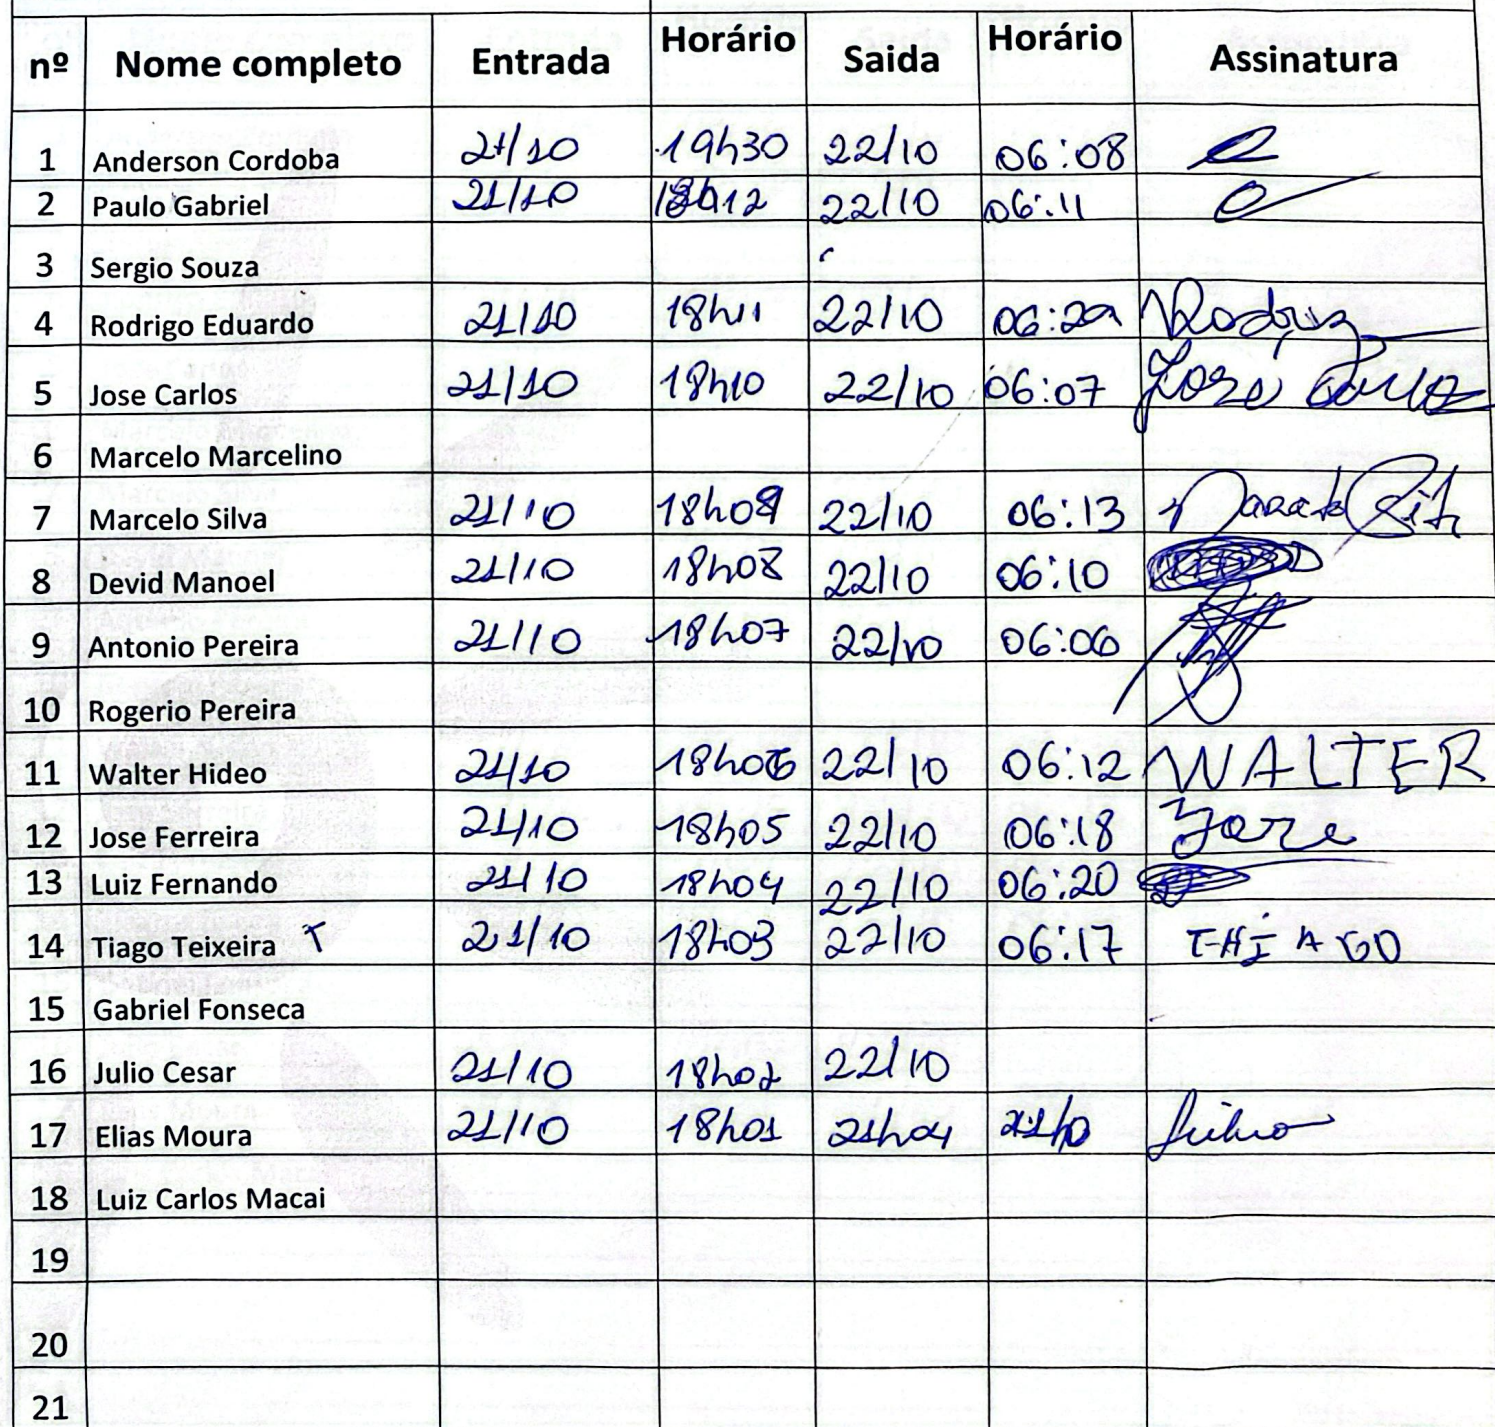 nº Nome completo Entrada Horário Saida Horário Assinatura
1 Anderson Cordoba 21/10 19h30 22/10 06:08
2 Paulo Gabriel 21/10 18h12 22/10 06:11
3 Sergio Souza
4 Rodrigo Eduardo 21/10 18h11 22/10
5 Jose Carlos 21/10 18h10 22/10 06:07 José Carlos
6 Marcelo Marcelino
7 Marcelo Silva 21/10 18h09 22/10 06:13
8 Devid Manoel 21/10 18h08 22/10 06:10
9 Antonio Pereira 21/10 18h07 22/10 06:06
10 Rogerio Pereira
11 Walter Hideo 21/10 18h06 22/10 06:12 WALTER
12 Jose Ferreira 21/10 18h05 22/10 06:18 Jose
13 Luiz Fernando 21/10 18h04 22/10 06:20
14 Tiago Teixeira T 21/10 18h03 22/10 06:17 THIAGO
15 Gabriel Fonseca
16 Julio Cesar 21/10 18h02 22/10
17 Elias Moura 21/10 18h01 21h04 21/10
18 Luiz Carlos Macai
19
20
21